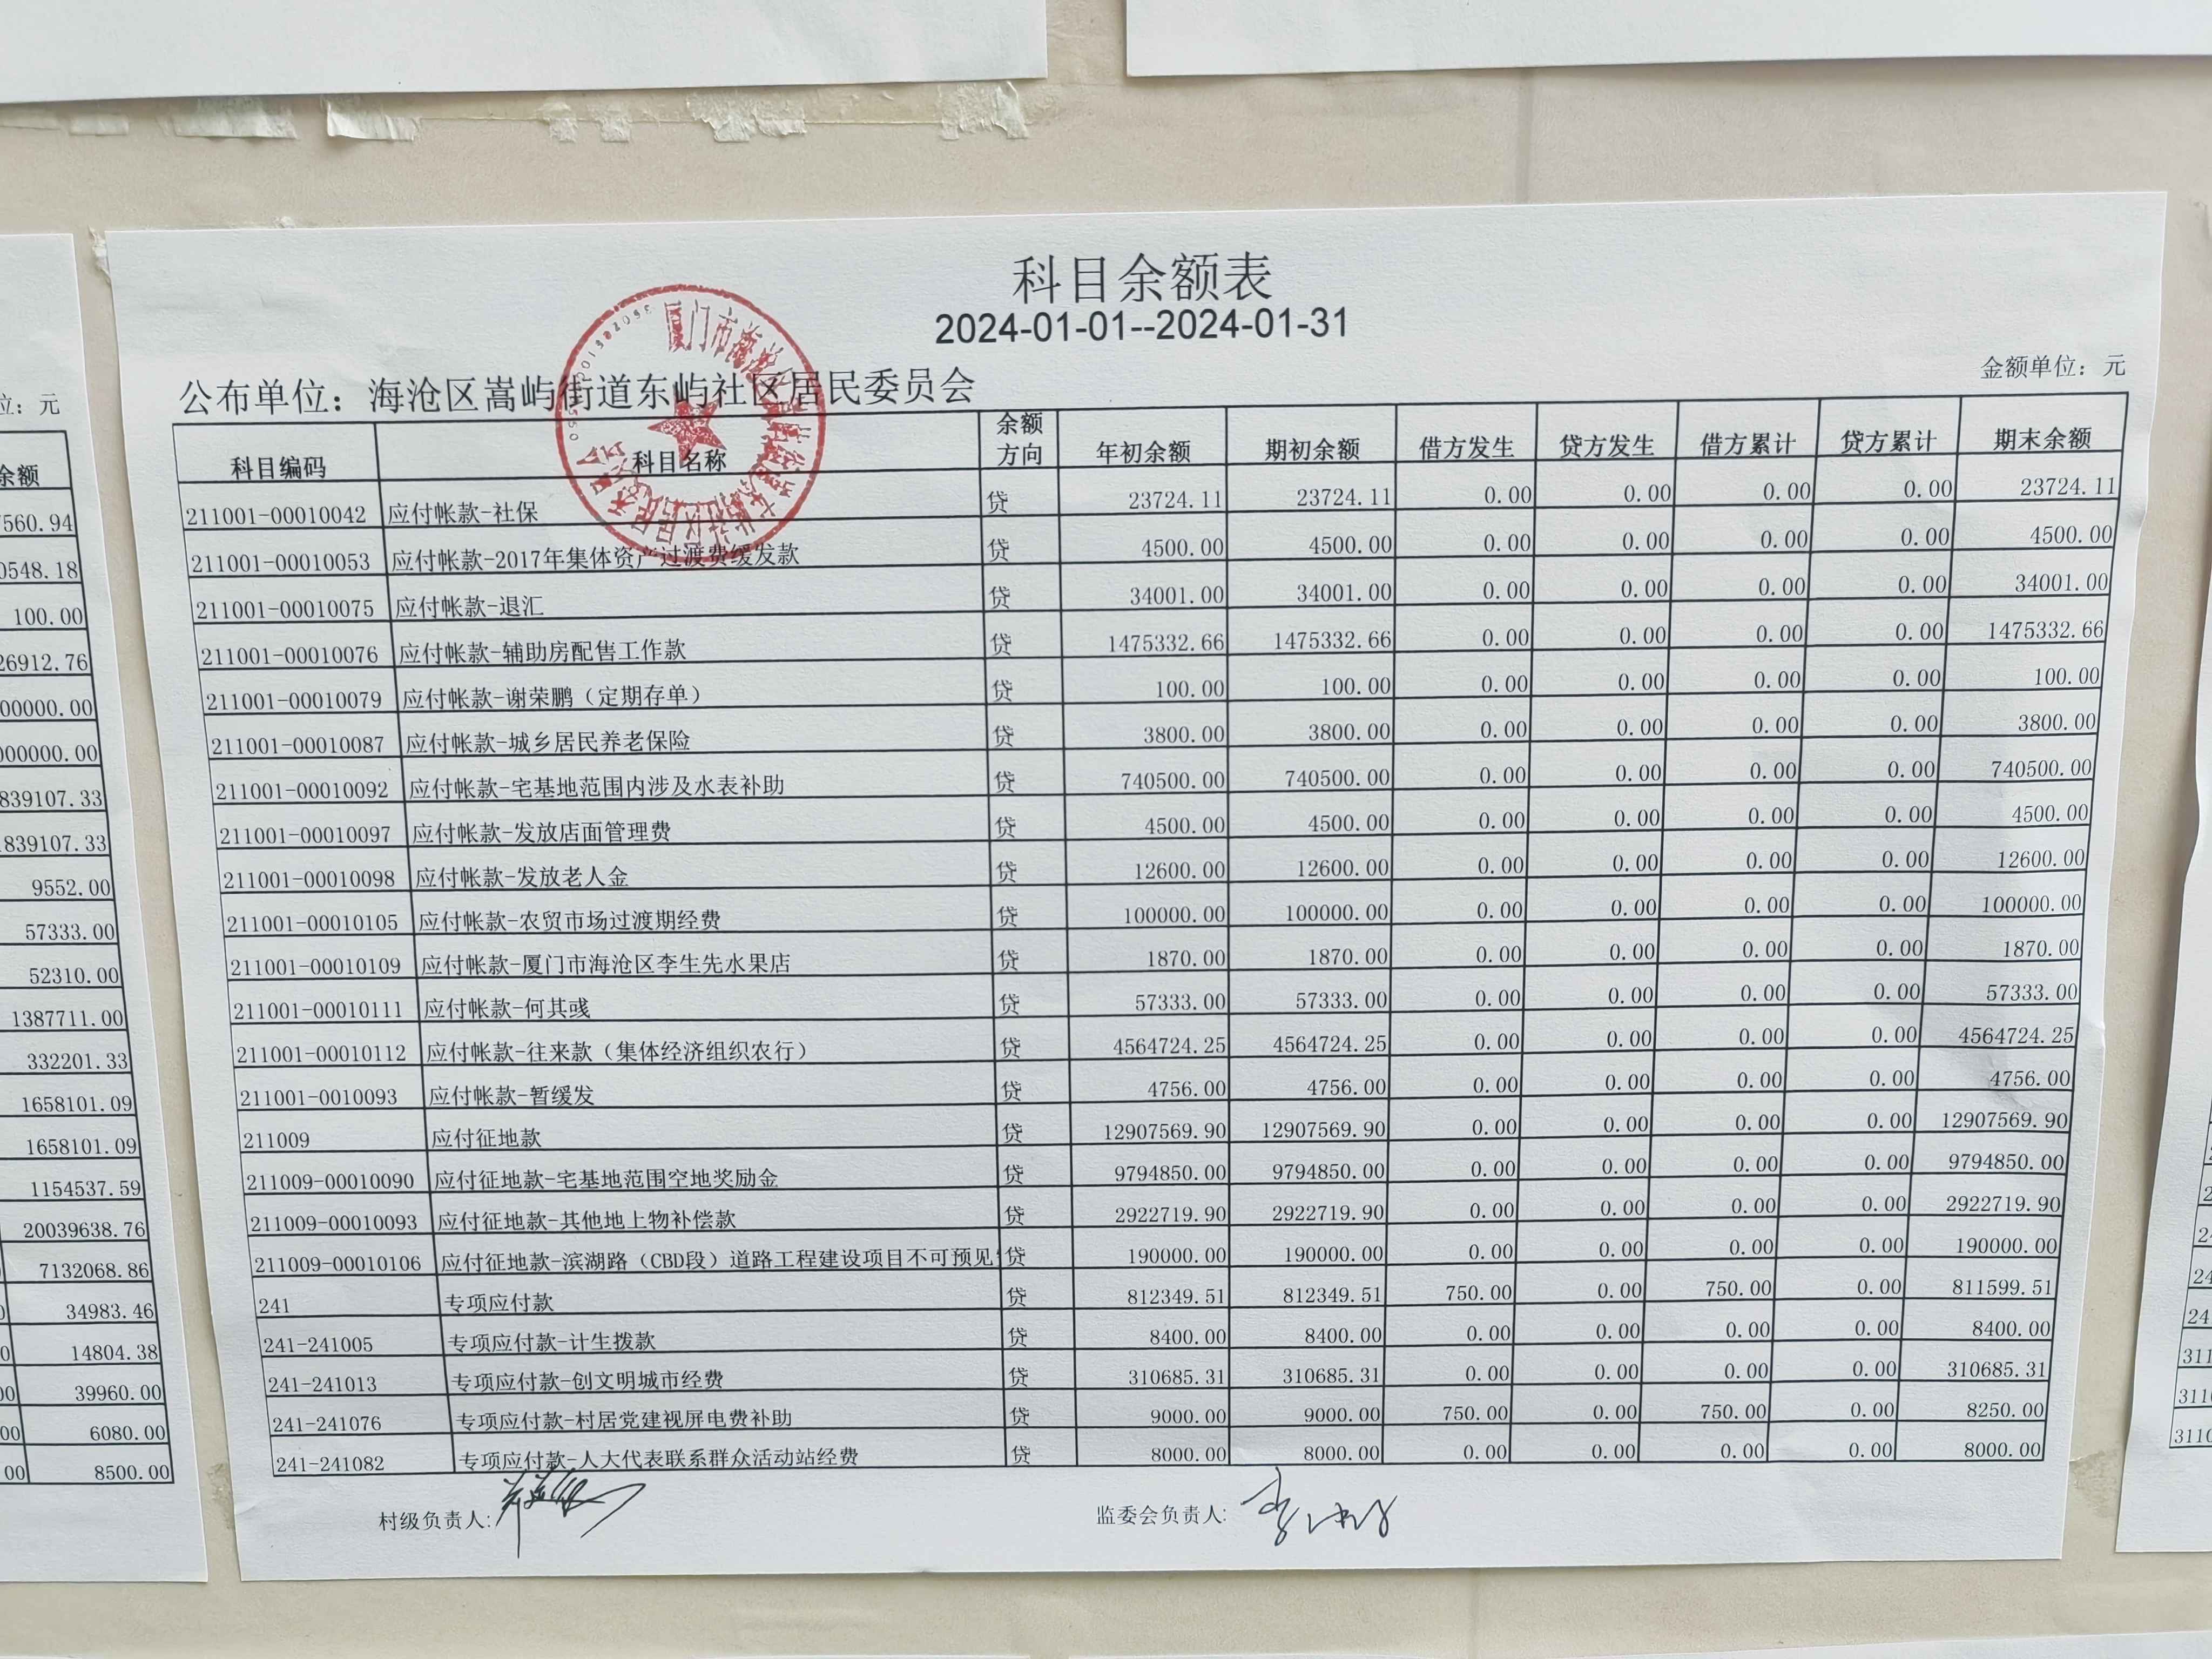 科目余额表
2024-01-01--2024-01-31
公布单位：海沧区嵩屿街道东屿社区居民委员会 金额单位：元
科目编码 科目名称 余额方向 年初余额 期初余额 借方发生 贷方发生 借方累计 贷方累计 期末余额
211001-00010042 应付帐款-社保 贷 23724.11 23724.11 0.00 0.00 0.00 0.00 23724.11
211001-00010053 应付帐款-2017年集体资产过渡费缓发款 贷 4500.00 4500.00 0.00 0.00 0.00 0.00 4500.00
211001-00010075 应付帐款-退汇 贷 34001.00 34001.00 0.00 0.00 0.00 0.00 34001.00
211001-00010076 应付帐款-辅助房配售工作款 贷 1475332.66 1475332.66 0.00 0.00 0.00 0.00 1475332.66
211001-00010079 应付帐款-谢荣鹏（定期存单） 贷 100.00 100.00 0.00 0.00 0.00 0.00 100.00
211001-00010087 应付帐款-城乡居民养老保险 贷 3800.00 3800.00 0.00 0.00 0.00 0.00 3800.00
211001-00010092 应付帐款-宅基地范围内涉及水表补助 贷 740500.00 740500.00 0.00 0.00 0.00 0.00 740500.00
211001-00010097 应付帐款-发放店面管理费 贷 4500.00 4500.00 0.00 0.00 0.00 0.00 4500.00
211001-00010098 应付帐款-发放老人金 贷 12600.00 12600.00 0.00 0.00 0.00 0.00 12600.00
211001-00010105 应付帐款-农贸市场过渡期经费 贷 100000.00 100000.00 0.00 0.00 0.00 0.00 100000.00
211001-00010109 应付帐款-厦门市海沧区李生先水果店 贷 1870.00 1870.00 0.00 0.00 0.00 0.00 1870.00
211001-00010111 应付帐款-何其彧 贷 57333.00 57333.00 0.00 0.00 0.00 0.00 57333.00
211001-00010112 应付帐款-往来款（集体经济组织农行） 贷 4564724.25 4564724.25 0.00 0.00 0.00 0.00 4564724.25
211001-0010093 应付帐款-暂缓发 贷 4756.00 4756.00 0.00 0.00 0.00 0.00 4756.00
211009 应付征地款 贷 12907569.90 12907569.90 0.00 0.00 0.00 0.00 12907569.90
211009-00010090 应付征地款-宅基地范围空地奖励金 贷 9794850.00 9794850.00 0.00 0.00 0.00 0.00 9794850.00
211009-00010093 应付征地款-其他地上物补偿款 贷 2922719.90 2922719.90 0.00 0.00 0.00 0.00 2922719.90
211009-00010106 应付征地款-滨湖路（CBD段）道路工程建设项目不可预见 贷 190000.00 190000.00 0.00 0.00 0.00 0.00 190000.00
241 专项应付款 贷 812349.51 812349.51 750.00 0.00 750.00 0.00 811599.51
241-241005 专项应付款-计生拨款 贷 8400.00 8400.00 0.00 0.00 0.00 0.00 8400.00
241-241013 专项应付款-创文明城市经费 贷 310685.31 310685.31 0.00 0.00 0.00 0.00 310685.31
241-241076 专项应付款-村居党建视屏电费补助 贷 9000.00 9000.00 750.00 0.00 750.00 0.00 8250.00
241-241082 专项应付款-人大代表联系群众活动站经费 贷 8000.00 8000.00 0.00 0.00 0.00 0.00 8000.00
村级负责人: 监委会负责人:
位：元
余额
560.94
0548.18
100.00
26912.76
00000.00
000000.00
839107.33
839107.33
9552.00
57333.00
52310.00
1387711.00
332201.33
1658101.09
1658101.09
1154537.59
20039638.76
7132068.86
34983.46
14804.38
39960.00
6080.00
8500.00